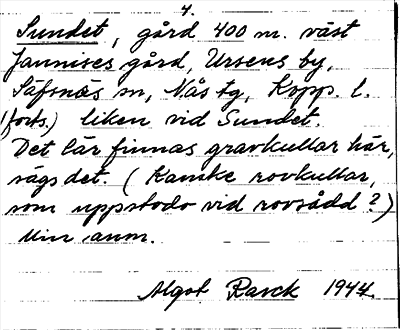 4.
Sundet, gård 400 m. väst
Jannises gård, Ursens by,
Säfsnäs sn, Nås tg, Kopp. l.
(forts.) liken vid Sundet.
Det lär finnas gravkullar här,
sägs det. (Kanske rovkullar,
som uppstodo vid rovsådd?)
Min anm.
Algot Ranck 1944.